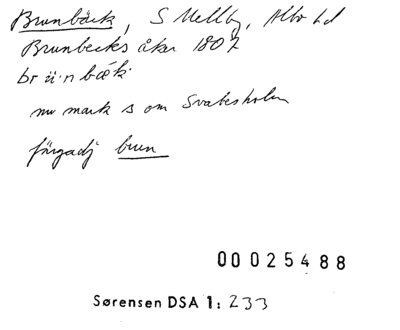 Brunbäck, S Mellby, Albo hd
Brunbecks åker 1807
br ü·n bæk·
nu mark s om Svabesholm
färgadj brun
00025488
Sørensen DSA 1: 233